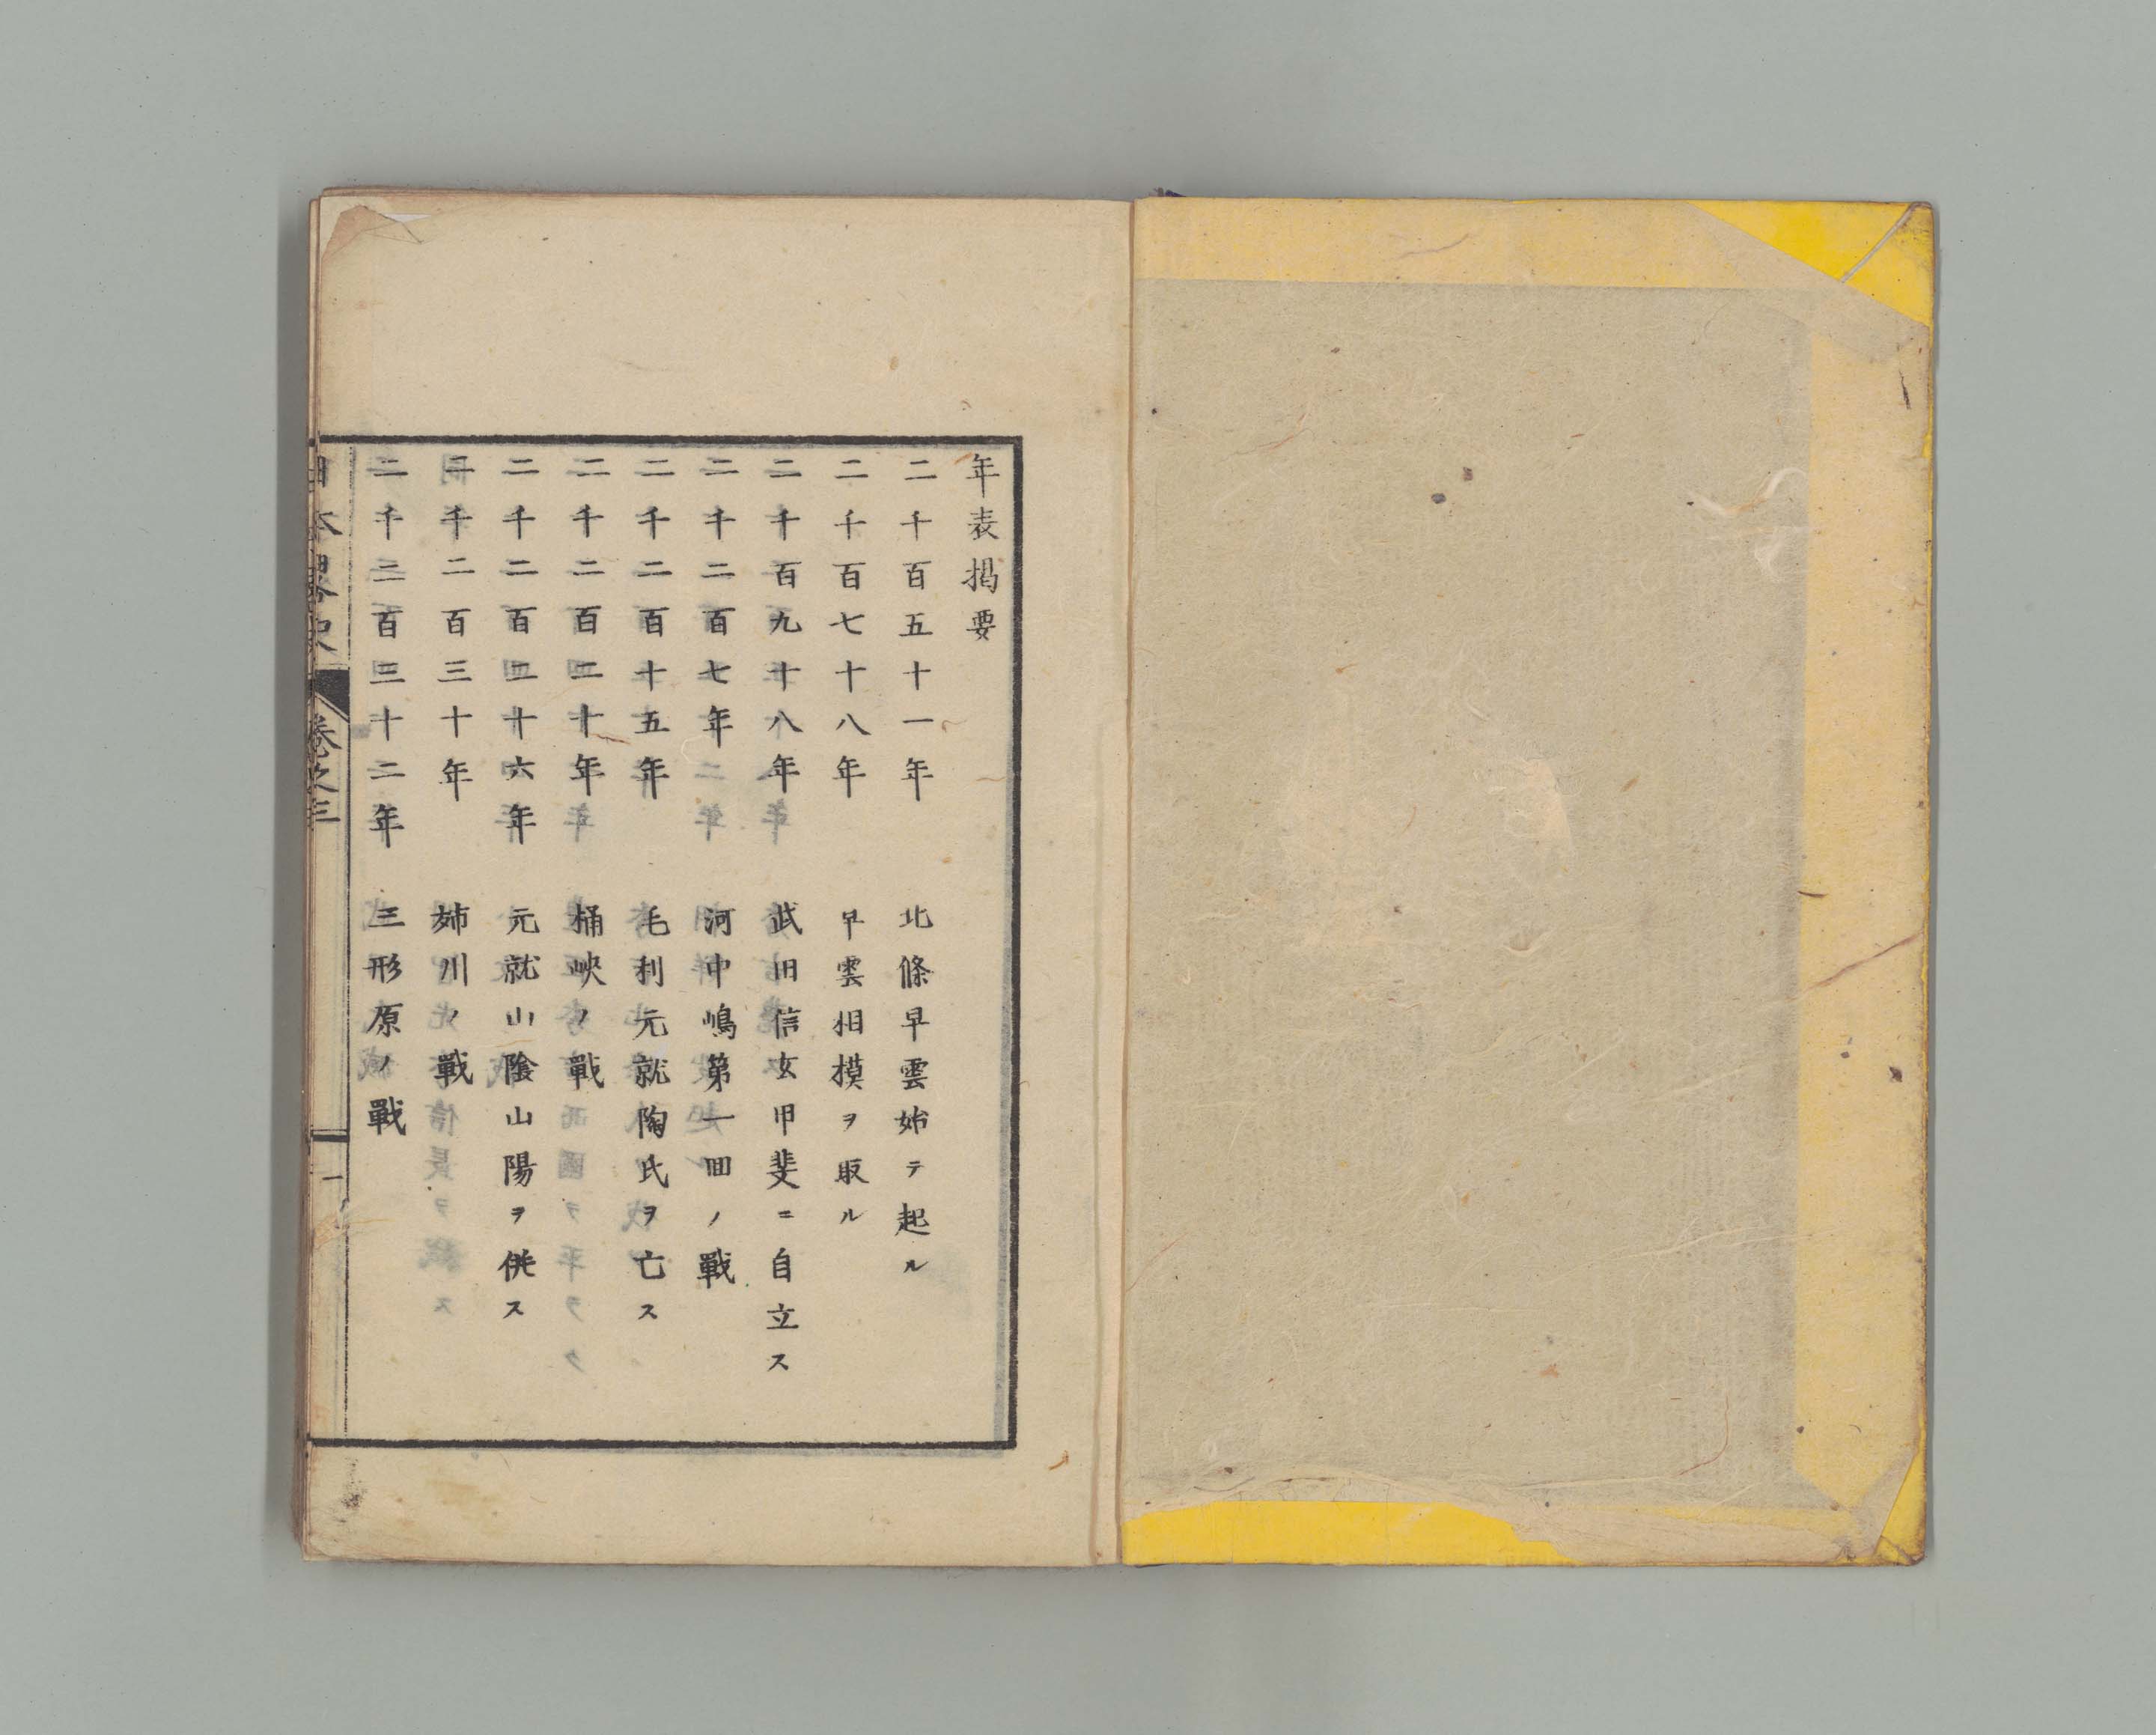 年表掲要
二千百五十一年　北條早雲始テ起ル
二千百七十八年　早雲相摸ヲ取ル
二千百九十八年　武田信玄甲斐ニ自立ス
二千二百七年　河中嶋第一回ノ戰
二千二百十五年　毛利元就陶氏ヲ亡ス
二千二百二十年　桶峽ノ戰
二千二百二十六年　元就山陰山陽ヲ併ス
二千二百三十年　姉川ノ戰
二千二百三十二年　三形原ノ戰
日本畧史　卷之三　一